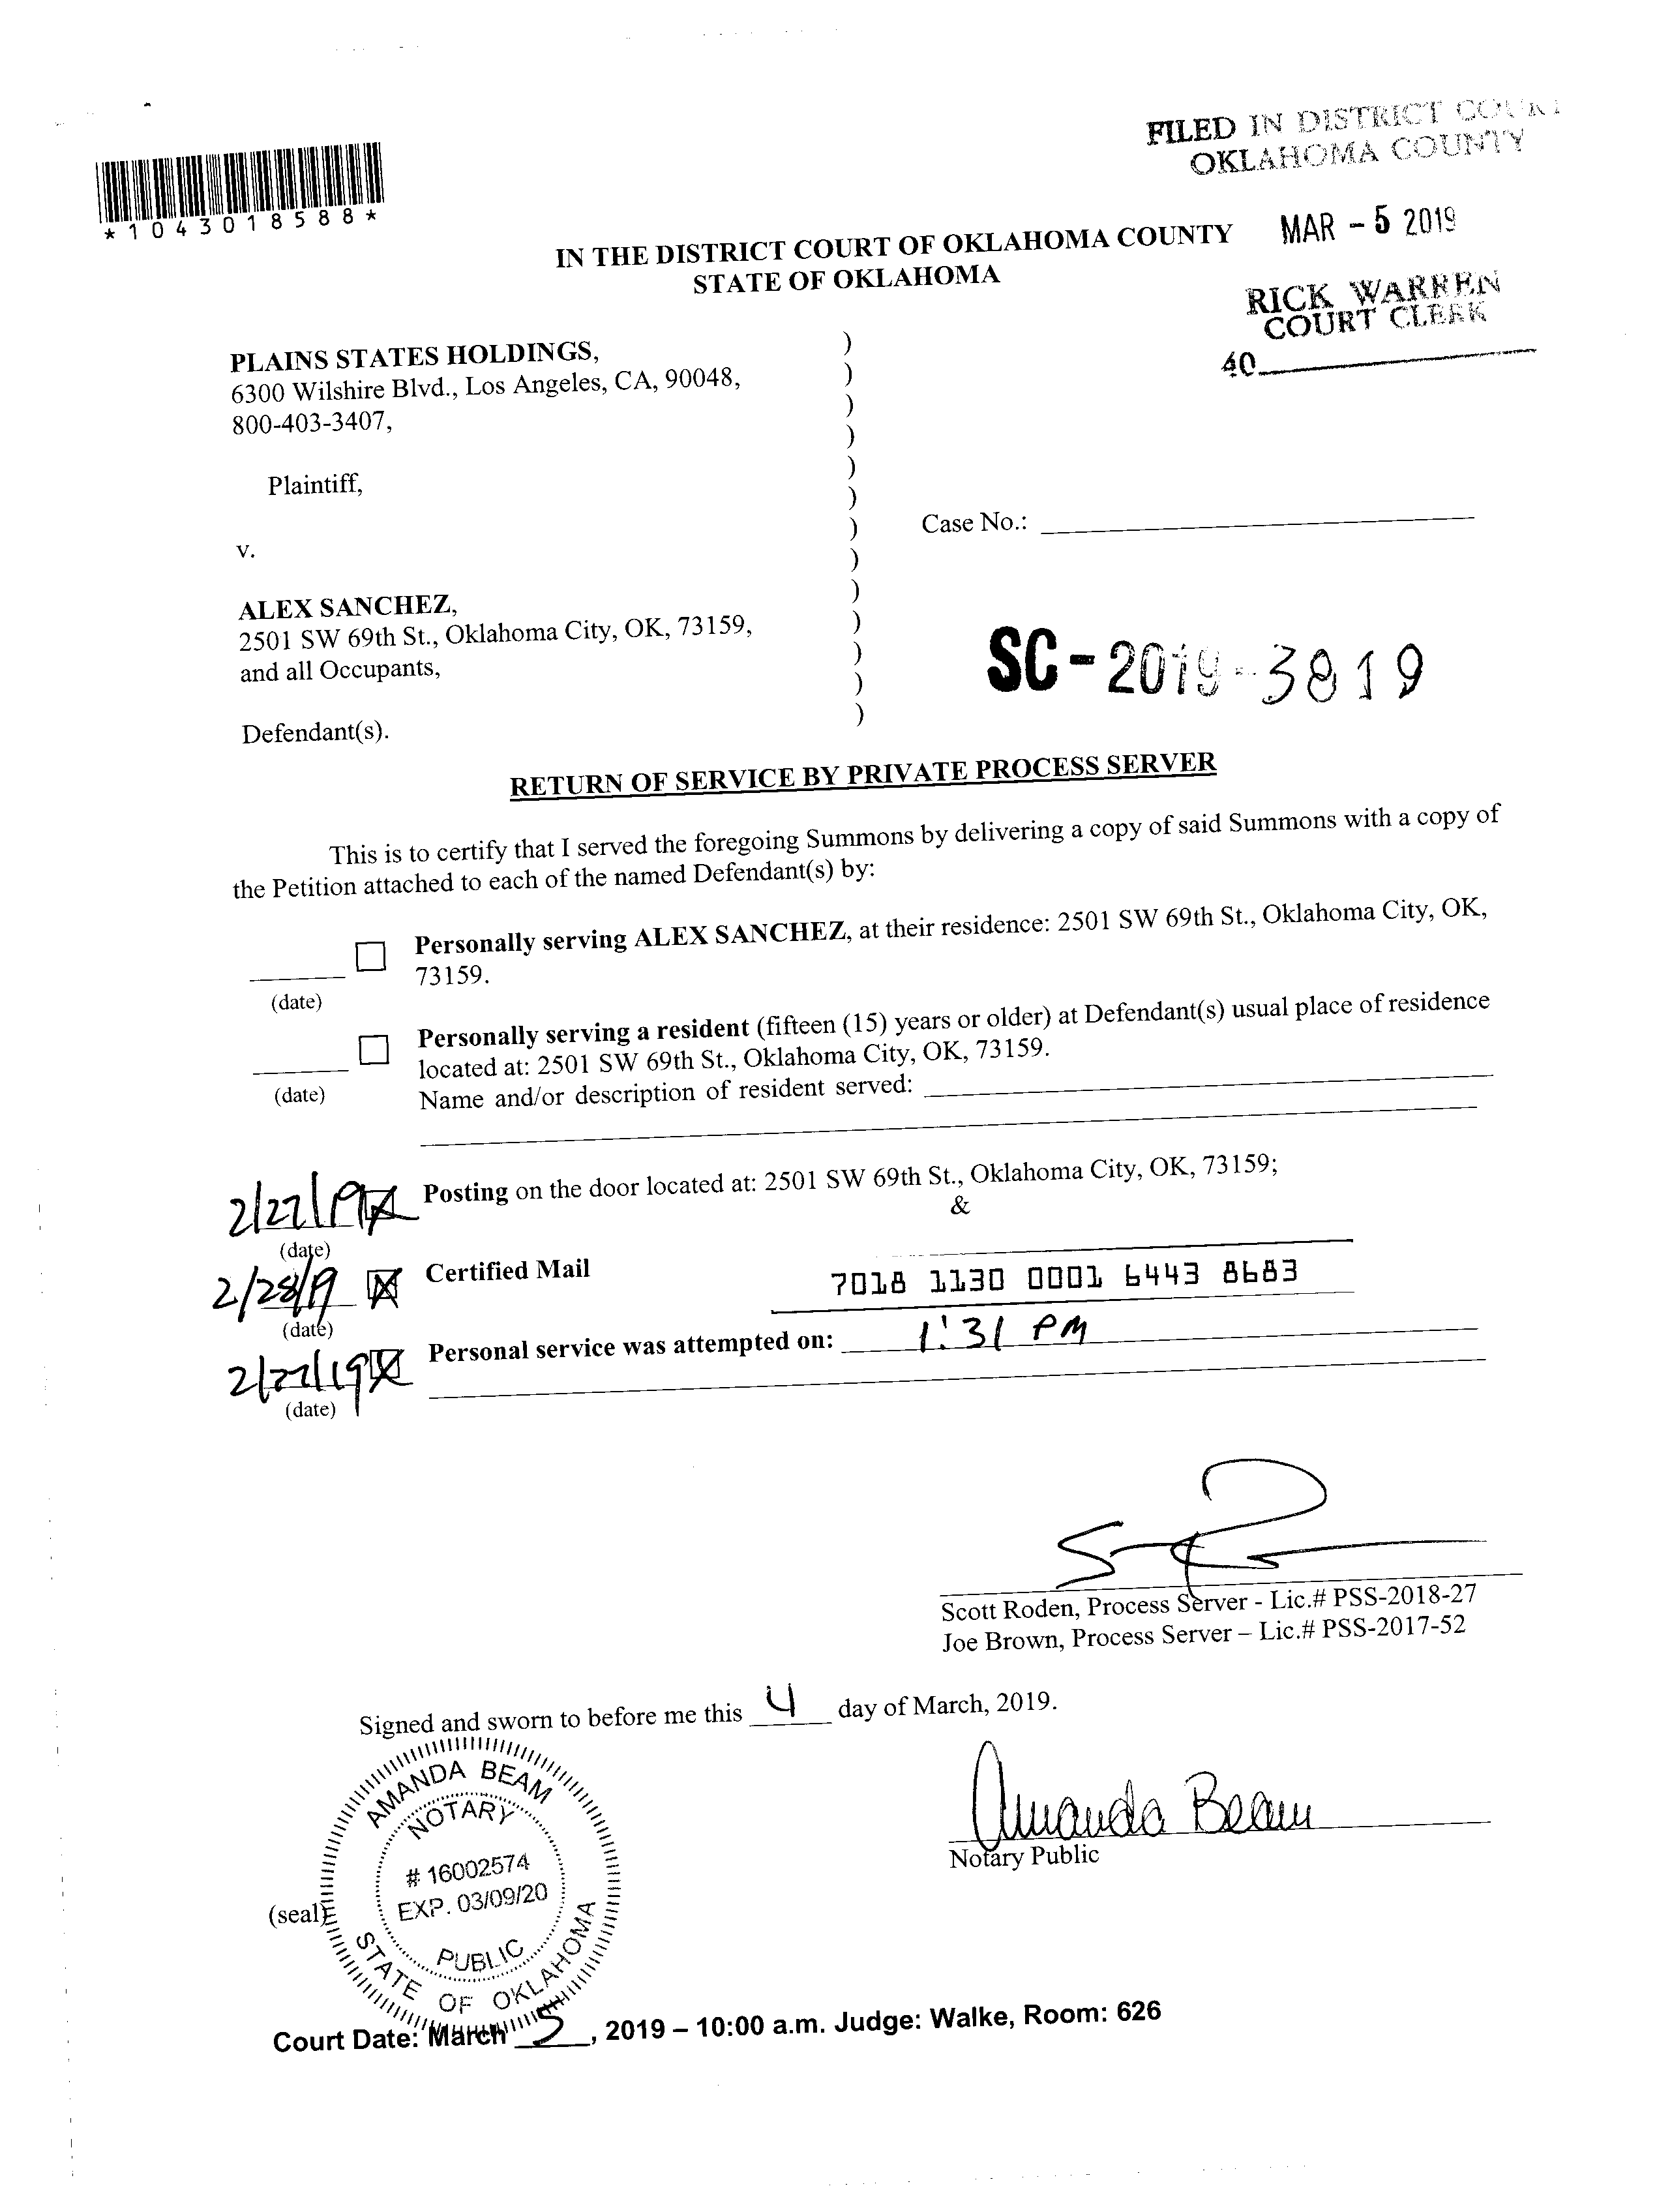 FILED IN DISTRICT COURT
OKLAHOMA COUNTY
*1043018588*
MAR - 5 2019
IN THE DISTRICT COURT OF OKLAHOMA COUNTY
STATE OF OKLAHOMA
RICK WARREN
COURT CLERK
40
PLAINS STATES HOLDINGS, )
6300 Wilshire Blvd., Los Angeles, CA, 90048, )
800-403-3407, )
)
Plaintiff, )
)
) Case No.:
v. )
)
ALEX SANCHEZ, )
2501 SW 69th St., Oklahoma City, OK, 73159, )
and all Occupants, )
)
Defendant(s). )
SC-2019-3819
RETURN OF SERVICE BY PRIVATE PROCESS SERVER
This is to certify that I served the foregoing Summons by delivering a copy of said Summons with a copy of
the Petition attached to each of the named Defendant(s) by:
Personally serving ALEX SANCHEZ, at their residence: 2501 SW 69th St., Oklahoma City, OK,
73159.
(date)
Personally serving a resident (fifteen (15) years or older) at Defendant(s) usual place of residence
located at: 2501 SW 69th St., Oklahoma City, OK, 73159.
(date)
Name and/or description of resident served:
2/27/19 Posting on the door located at: 2501 SW 69th St., Oklahoma City, OK, 73159;
&
(date)
2/28/19 Certified Mail 7018 1130 0001 6443 8683
(date)
2/27/19 Personal service was attempted on: 1:31 PM
(date)
Scott Roden, Process Server - Lic.# PSS-2018-27
Joe Brown, Process Server – Lic.# PSS-2017-52
Signed and sworn to before me this 4 day of March, 2019.
AMANDA BEAM
NOTARY
# 16002574
EXP. 03/09/20
PUBLIC
STATE OF OKLAHOMA
Amanda Beam
Notary Public
(seal)
Court Date: March 5, 2019 – 10:00 a.m. Judge: Walke, Room: 626